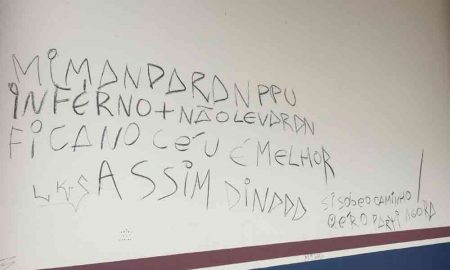 MIMANDARAN PPU
INFERNO+NÃO LEVARAN
FICANO CÉU É MELHOR
LKS ASSIM DINADA
SI SOBEO CAMINHO
QERO PARTI AGORA